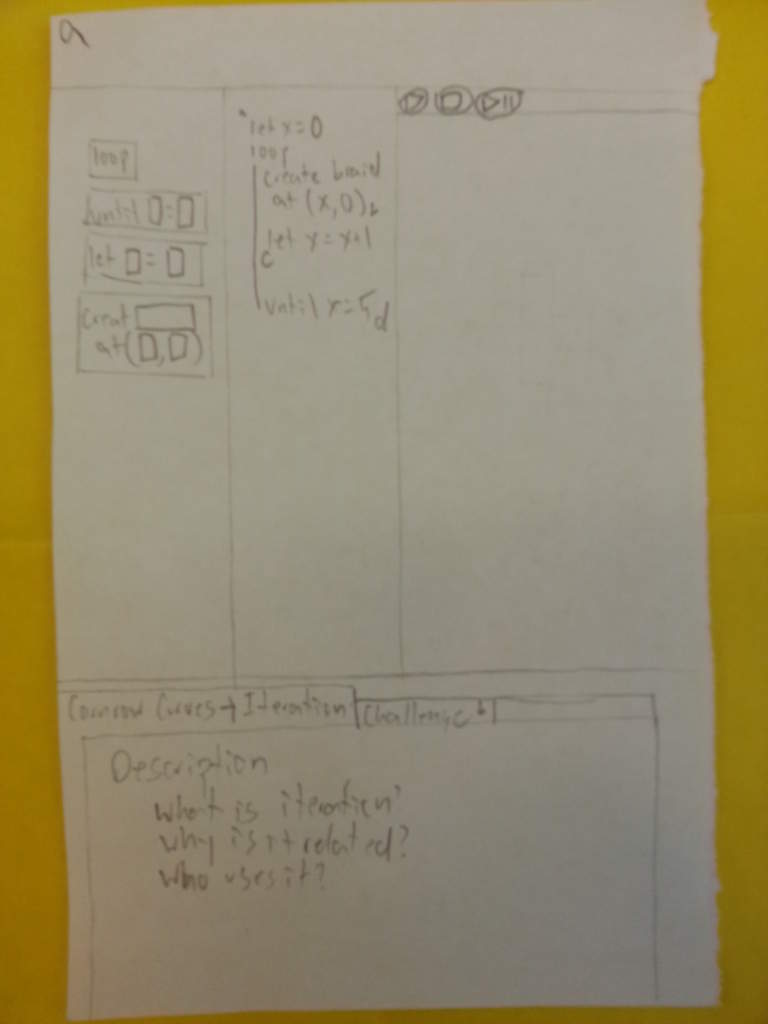 a
loop
until □=□
let □=□
creat
at(□,□)
let x=0
loop
create braid
at (x,0) b
let x=x+1
c
until x=5 d
Cornrow Curves → Iteration
Challenge
Description
what is iteration?
why is it related?
who uses it?